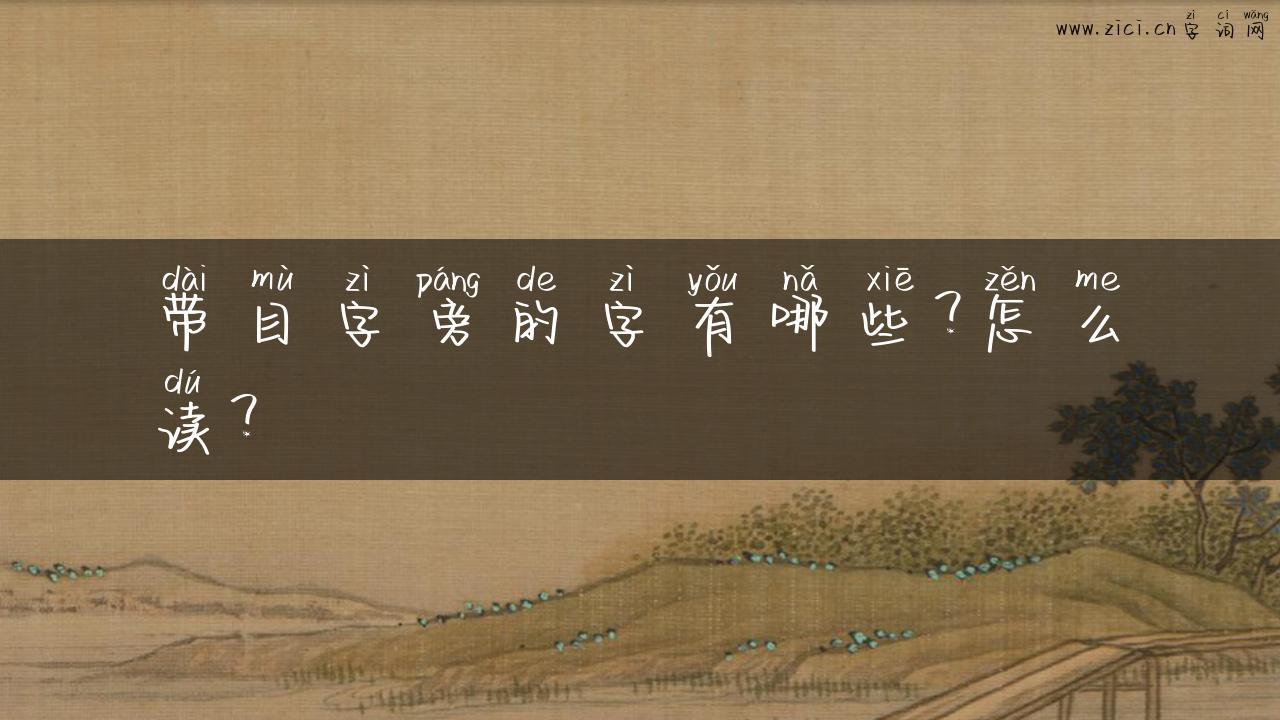 zì cí wǎng
www.zici.cn字词网
dài mù zì páng de zì yǒu nǎ xiē zěn me
带目字旁的字有哪些？怎么
dú
读？